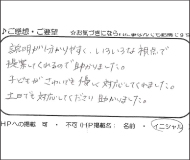 ♪ご感想・ご要望
説明が分かりやすく、いろいろな視点で
提案してくれるので助かりました。
子どもがさわいでも優しく対応してくれました。
土日でも対応してくださり助かりました。
HPへの掲載 可 ・ 不可(HP掲載名: 名前 ・ イニシャル